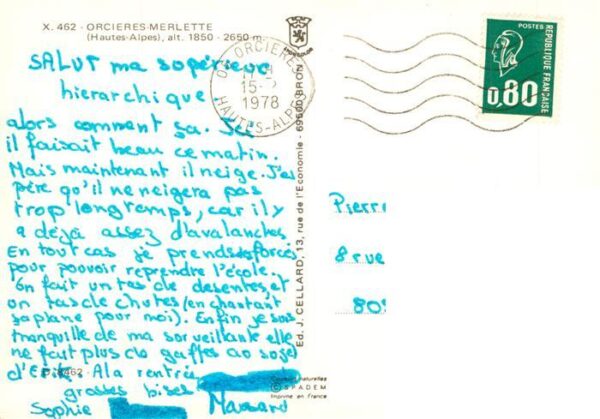 X. 462 - ORCIERES-MERLETTE
(Hautes-Alpes), alt. 1850 - 2650 m.
SALUT ma sopérieure
hierarchique.
alors comment sa. Ici
il faisait beau ce matin.
Mais maintenant il neige. J'es
père qu'il ne neigera pas
trop longtemps, car il y
a déjà assez d'avalanches
En tout cas je prends forces
pour pouvoir reprendre l'école.
on fait un tas de desentes, et
un tas de chutes (en chantant
sa plane pour moi). Enfin je suis
tranquille de ma surveillante elle
ne fait plus de gaffes ao sojet
d'Eric. A la rentrée
grosses bises
Sophie Massard
ORCIERES
15-2
1978
HAUTES-ALPES
Ed. J. CELLARD, 13, rue de l'Economie - 69500 BRON
POSTES
REPUBLIQUE FRANÇAISE
0,80
Pierr
8 rue
80
462
Couleurs naturelles
SPADEM
Imprimé en France